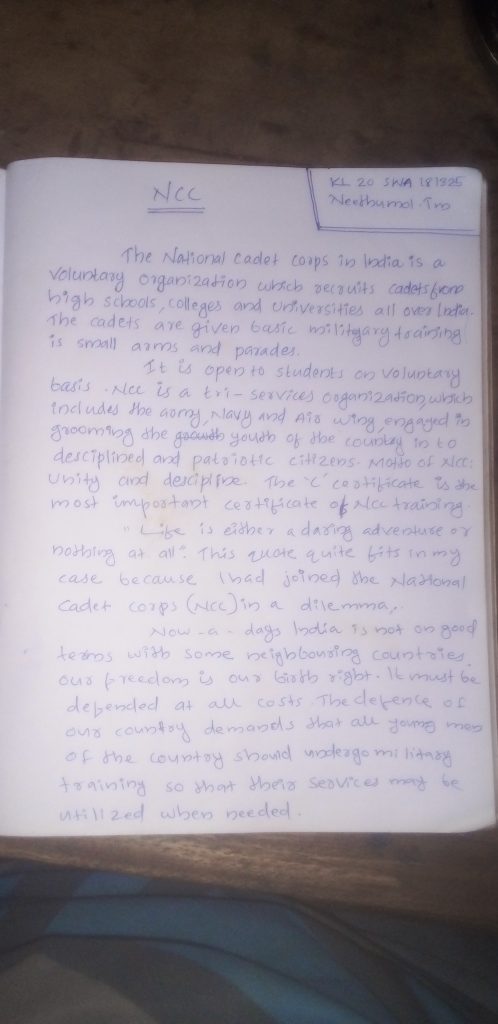 NCC
KL 20 SWA 181325
Neethumol. T.m
The National Cadet Corps in India is a
voluntary organization which recruits cadets from
high schools, colleges and universities all over India.
The cadets are given basic military training
is small arms and parades.
It is open to students on voluntary
basis. Ncc is a tri-services organization, which
includes the army, Navy and Air wing, engaged in
grooming the growth youth of the country in to
desciplined and patriotic citizens. Motto of NCC:
Unity and descipline. The 'C' certificate is the
most important certificate of Ncc training.
"Life is either a daring adventure or
nothing at all". This quote quite fits in my
case because I had joined the National
Cadet corps (NCC) in a dilemma,.
Now-a-days India is not on good
terms with some neighbouring countries.
our freedom is our birth right. It must be
depended at all costs. The defence of
our country demands that all young men
of the country should undergo military
training so that their services may be
utillized when needed.